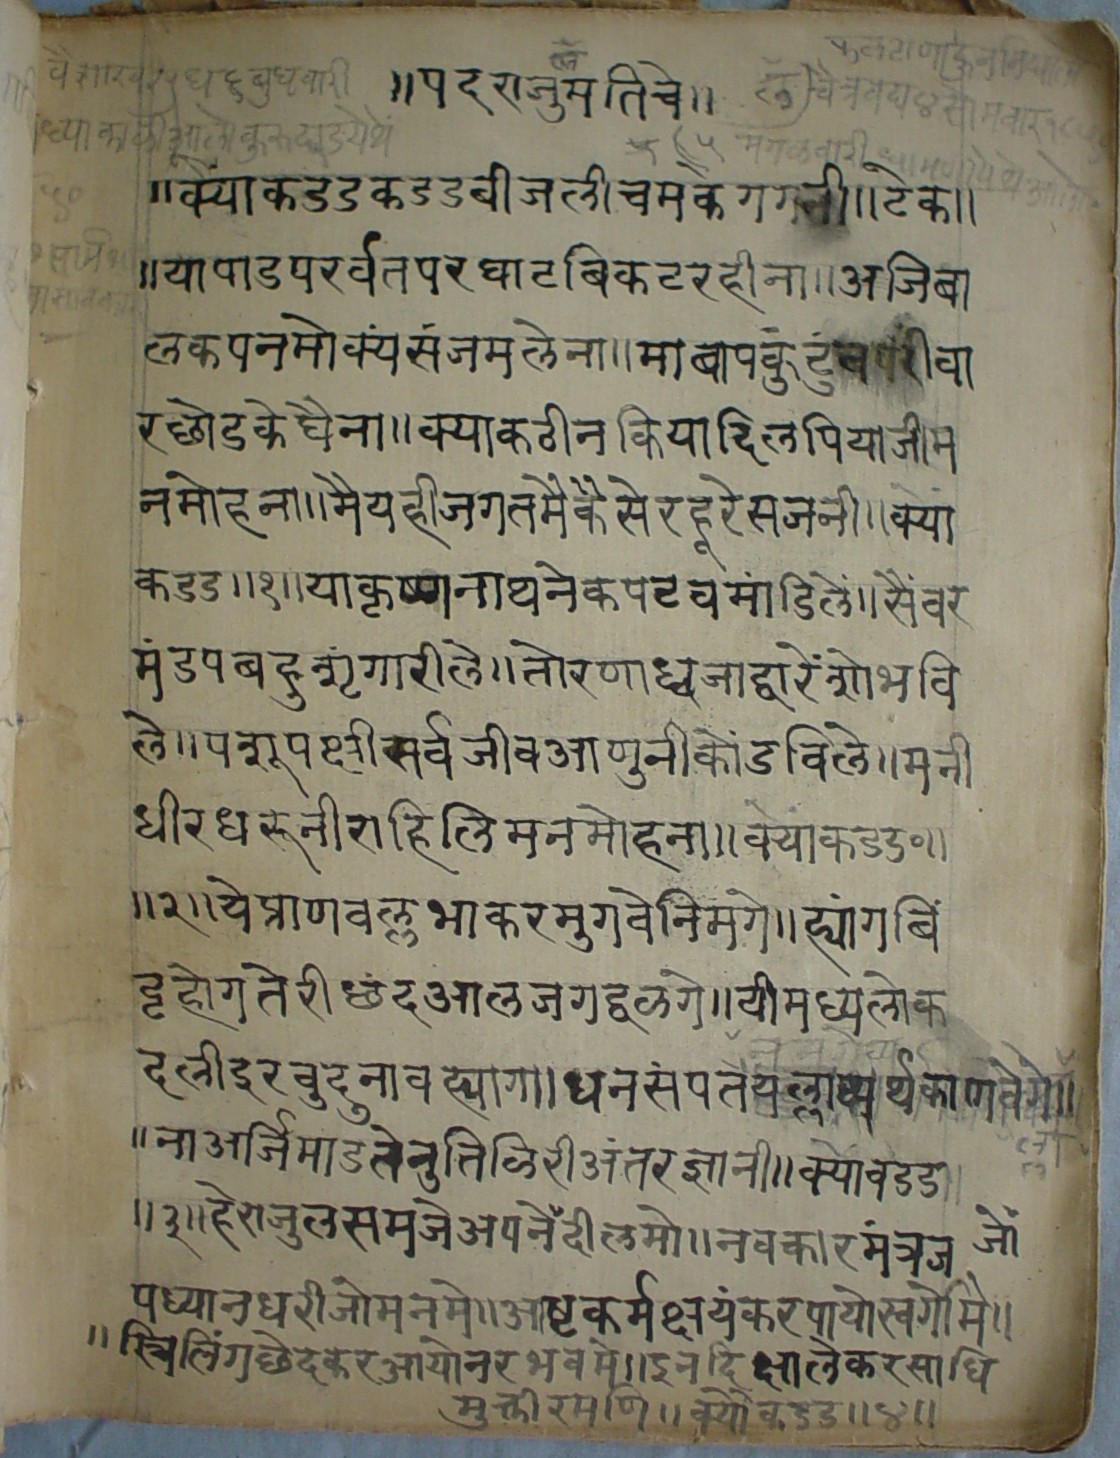 वैशाख शुध ६ बुधवारी
॥पद राजुमतिचे॥
॥क्येंाकडडकडडबीजलीचमके गगनी॥टेक॥
॥यापाडपरर्वतपरघाटबिकटरहीना॥अजिबा
लकपनमोक्यंसंजमलेना॥माबापकुंटुंबपरीवा
रछोडकेघैना॥क्याकठीनकियादिलपियाजीम
नमोहना॥मैयहीजगतमैकैसेरहूरेसजनी॥क्येां
कडडड॥१॥याकृष्णनाथनेकपटचमांडिलें॥सैंवर
मंडपबहुशृंगारीले॥तोरणाध्वजाद्वारेंशोभवि
ले॥पशूपक्षीसर्वजीवआणुनीकोंडविले॥मनी
धीरधरूनीराहिलिमनमोहना॥क्येांकडडड०॥
॥२॥येप्राणवल्लभाकरमुगवेनिमगे॥ह्यांगबिं
दृहोगतेरीछंदआलजगद्वळगे॥यीमध्यलोक
दलीइरवुदुनावह्यागा॥धनसंपतैयल्लाव्यर्थकाणवेगे॥
॥नाअर्जिमाडतेनुतिळिरीअंतरज्ञानी॥क्येांकडडड॥
॥३॥हेराजुलसमजेअपनेंदीलमो॥नवकारमंत्रज जों
पध्यानधरीजोमनमे॥आष्टकर्मक्षयंकरपायोस्वर्गेमि॥
॥स्त्रिलिंगछेदकरआयोनरभवमे॥इनदिक्षालेकरसाधि
मुक्तीरमणि॥क्येांकडडड॥४॥